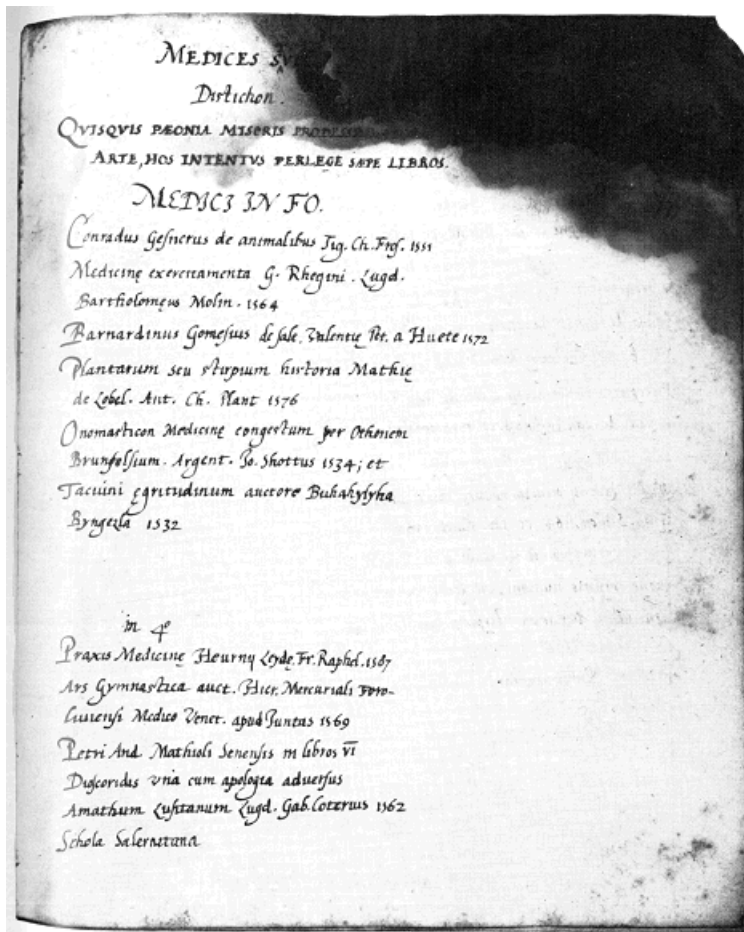 MEDICES
Distichon.
QVISQVIS PÆONIA MISERIS PRODESSE
ARTE, HOS INTENTVS PERLEGE SÆPE LIBROS.
MEDICI IN FO.
Conradus Gesnerus de animalibus Tig. Ch. Fros. 1551
Medicinę exercitamenta G. Rhegini. Lugd.
Bartholomęus Molin. 1564
Barnardinus Gomesius de sale. Valentię Pet. a Huete 1572
Plantarum seu stirpium historia Mathię
de Lobel. Ant. Ch. Plant 1576
Onomasticon Medicinę congestum per Othonem
Brunfelsium. Argent. Jo. Shottus 1534; et
Tacuini ęgritudinum auctore Buhahylyha
Byngezla 1532
in 4º
Praxis Medicinę Heurnij Leydę. Fr. Raphel. 1587
Ars Gymnastica auct. Hier. Mercuriali Foro-
liuiensi Medico Venet. apud Juntas 1569
Petri And. Mathioli Senensis in libros VI
Dioscoridis vna cum apologia aduersus
Amathum Lusitanum Lugd. Gab. Coterius 1562
Schola Salernitana